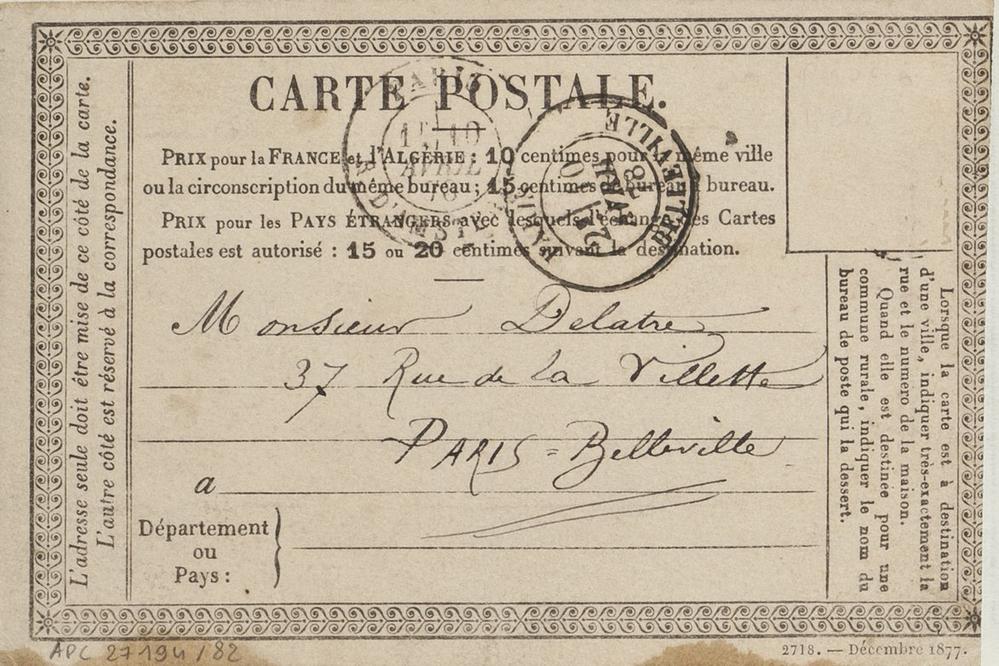 CARTE POSTALE.
PRIX pour la FRANCE et l'ALGÉRIE : 10 centimes pour la même ville
ou la circonscription du même bureau ; 15 centimes de bureau à bureau.
PRIX pour les PAYS ÉTRANGERS avec lesquels l'échange des Cartes
postales est autorisé : 15 ou 20 centimes suivant la destination.
Monsieur Delatre
37 Rue de la Villette
PARIS = Belleville
a
Département
ou
Pays :
L'adresse seule doit être mise de ce côté de la carte.
L'autre côté est réservé à la correspondance.
Lorsque la carte est à destination
d'une ville, indiquer très-exactement la
rue et le numero de la maison.
Quand elle est destinée pour une
commune rurale, indiquer le nom du
bureau de poste qui la dessert.
PARIS
AVRIL
R. D'AMSTERDAM
AVRIL
78
APC 27194/82
2718. — Décembre 1877.